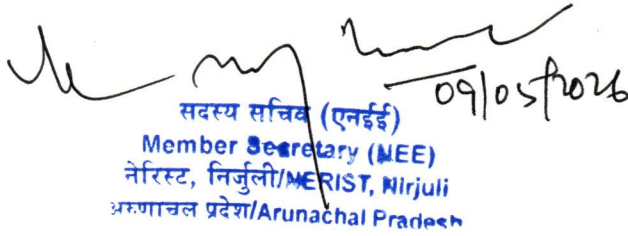 09/05/2026
सदस्य सचिव (एनईई)
Member Secretary (NEE)
नेरिस्ट, निर्जुली/NERIST, Nirjuli
अरुणाचल प्रदेश/Arunachal Pradesh